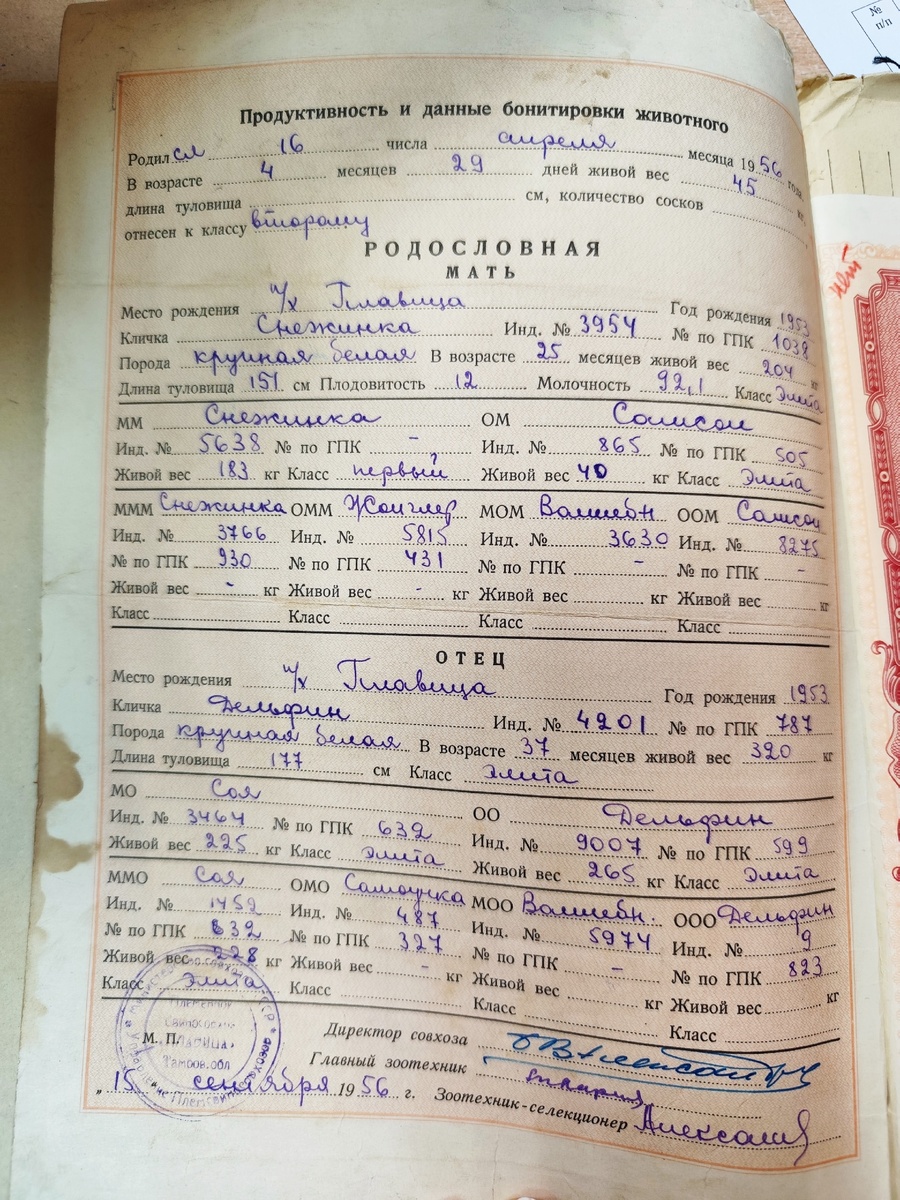 №
п/п
Продуктивность и данные бонитировки животного
Родился 16 числа апреля месяца 1956 года.
В возрасте 4 месяцев 29 дней живой вес 45 кг
длина туловища см, количество сосков
отнесен к классу второму
РОДОСЛОВНАЯ
МАТЬ
Место рождения п/х Плавица Год рождения 1953
Кличка Снежинка Инд. № 3954 № по ГПК 1038
Порода крупная белая В возрасте 25 месяцев живой вес 204 кг
Длина туловища 151 см Плодовитость 12 Молочность 92,1 Класс Элита
ММ Снежинка ОМ Самсон
Инд. № 5638 № по ГПК - Инд. № 865 № по ГПК 505
Живой вес 183 кг Класс первый Живой вес 40 кг Класс Элита
МММ Снежинка ОММ Жонглер МОМ Волшебн ООМ Самсон
Инд. № 3766 Инд. № 5815 Инд. № 3630 Инд. № 8275
№ по ГПК 930 № по ГПК 431 № по ГПК - № по ГПК -
Живой вес - кг Живой вес - кг Живой вес кг Живой вес кг
Класс Класс Класс Класс
ОТЕЦ
Место рождения п/х Плавица Год рождения 1953
Кличка Дельфин Инд. № 4201 № по ГПК 787
Порода крупная белая В возрасте 37 месяцев живой вес 320 кг
Длина туловища 177 см Класс элита
МО Соя ОО Дельфин
Инд. № 3464 № по ГПК 632 Инд. № 9007 № по ГПК 599
Живой вес 225 кг Класс элита Живой вес 265 кг Класс Элита
ММО Соя ОМО Самоучка МОО Волшебн. ООО Дельфин
Инд. № 1452 Инд. № 487 Инд. № 5974 Инд. № 9
№ по ГПК 632 № по ГПК 327 № по ГПК - № по ГПК 823
Живой вес 228 кг Живой вес - кг Живой вес кг Живой вес кг
Класс элита Класс Класс Класс
Директор совхоза
М. П. Главный зоотехник
„15" сентября 1956 г. Зоотехник-селекционер
Тамбов.обл
нет